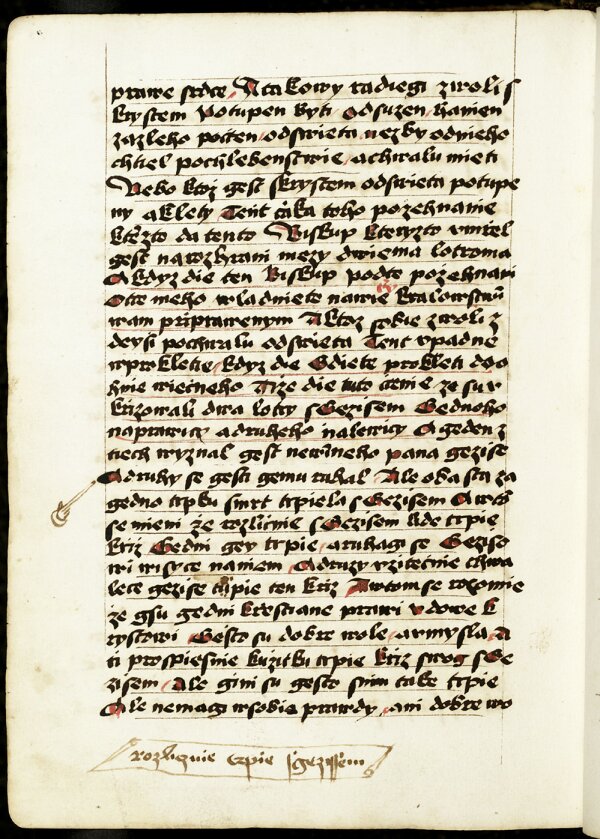 prawe srdce A takowy radiegi zwoli s
krystem Potupen byti odsuzen hanien
zazleho poczten odswieta nezby odnieho
chtiel pochlebenstwie achwalu mieti
Nebo ktoz gest skrystem odswieta potupe
ny aklety Tent czaka toho pozehnanie
kterzto da tento Biskup kteryzto vmrel
gest narozhrani mezy dwiema lotroma
A kdyz die ten Biskup podte pozehnani
Otce meho wladniete namie kralowstwi
wam priprawenym A ktoz sobie zwoli z
deysi pochwalu odswieta Tent vpadne
wprokletie kdyz die Gdiete prokleti do o
hnie wiecneho Tize die tuto genie ze su v
krizowali dwa lotry s Gezisem Gednoho
naprawicy adruheho nalewicy A geden z
tiech wyznal gest newinneho pana gezise
A druhy se gest gemu ruhal Ale oba sta za
gedno trpku smrt trpiela s Gezisem A toch
se mieni ze rozlicnie s Gezisem lide trpie
kriz Gedni gey trpie a ruhagi se Geziso
wi wisyce naniem A druzy vzitecnie chwa
lece gezise trpie ten kriz A wtom se rozomie
ze gsu gedni krestiane prawi vdowe k
rystowi Gesto su dobre wole a vmysla A
ti prospiesnie kuzitku trpie kriz swog s Ge
zisem Ale gini su gesto snim take trpie
Ale nemagi wsobie prawdy ani dobre wo
rozlicznie trpie s gezissem